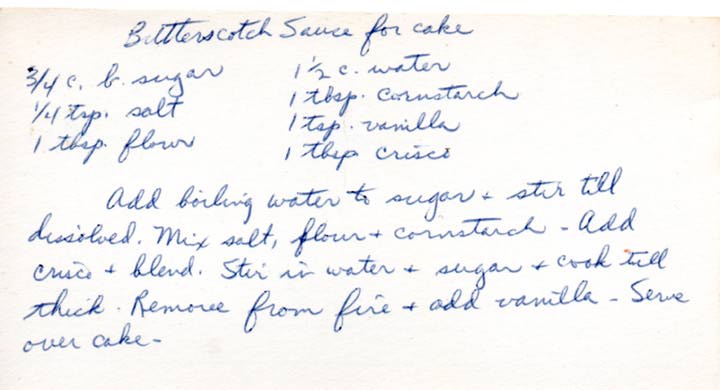 Butterscotch Sauce for cake
3/4 c. b. sugar 1 1/2 c. water
1/4 tsp. salt 1 tbsp. cornstarch
1 tbsp. flour 1 tsp. vanilla
1 tbsp crisco
Add boiling water to sugar + stir till
dissolved. Mix salt, flour + cornstarch - Add
crisco + blend. Stir in water + sugar + cook till
thick. Remove from fire + add vanilla - Serve
over cake -